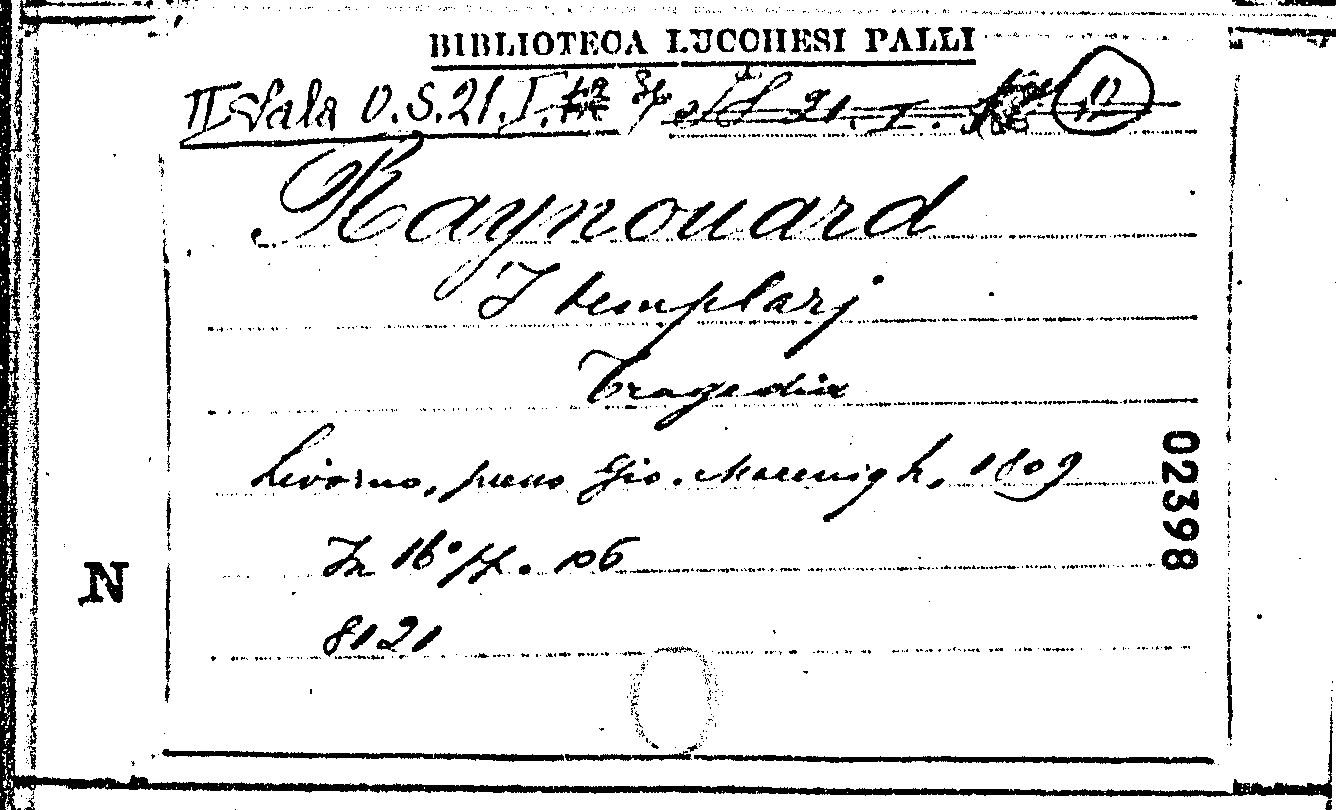 BIBLIOTECA LUCCHESI PALLI
II Sala O.S.21.I.
Raynouard
I templarj
Tragedia
Livorno, presso Gio. Marenigh, 1809
In 16° pp. 106
8121
N
02398